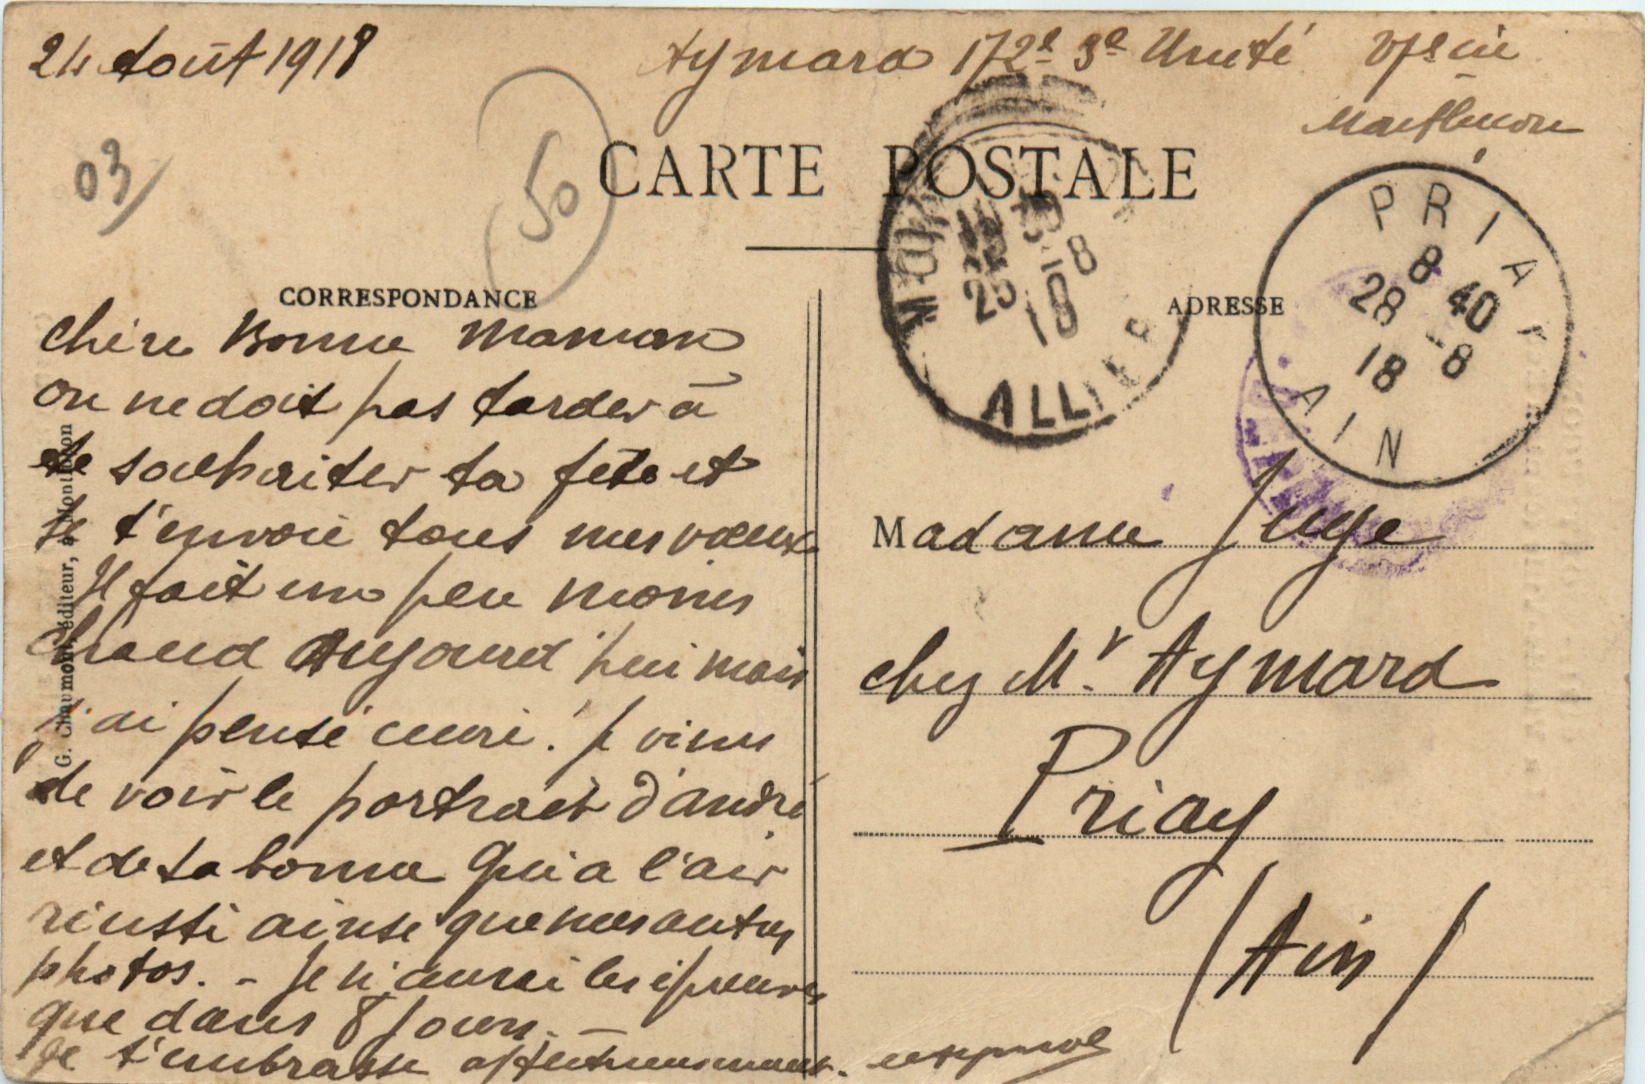 24 Août 1918
Aymard 172e 3e Unité
Montluçon
03
50
CARTE POSTALE
CORRESPONDANCE
ADRESSE
ALLIER
25 8
18
PRIAY
8 40
28 -8
18
AIN
G. Chaumont, éditeur, à Montluçon
Chère Bonne Maman
on ne doit pas tarder à
te souhaiter ta fête et
je t'envoie tous mes vœux
Il fait un peu moins
chaud Aujourd'hui mais
j'ai pensé cuire! Je viens
de voir le portrait d'André
et de sa bonne qui a l'air
réussi ainsi que mes autres
photos. - Je n'aurai les épreuves
que dans 8 jours. -
Je t'embrasse affectueusement.
Madame Juge
chez Mr. Aymard
Priay
(Ain)